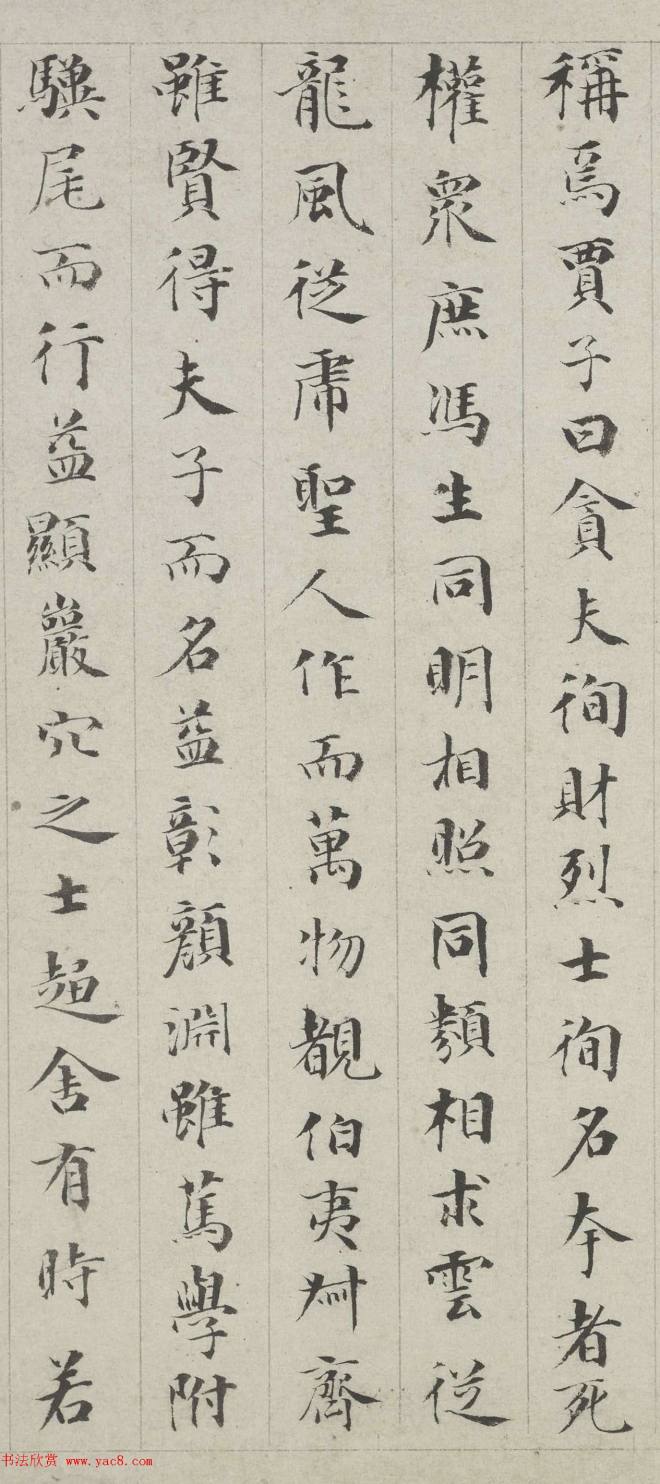 稱焉賈子曰貪夫徇財烈士徇名夸者死
權衆庶馮生同明相照同類相求雲從
龍風從虎聖人作而萬物覩伯夷叔齊
雖賢得夫子而名益彰顏淵雖篤學附
驥尾而行益顯巖穴之士趨舍有時若
书法欣赏 www.yac8.com